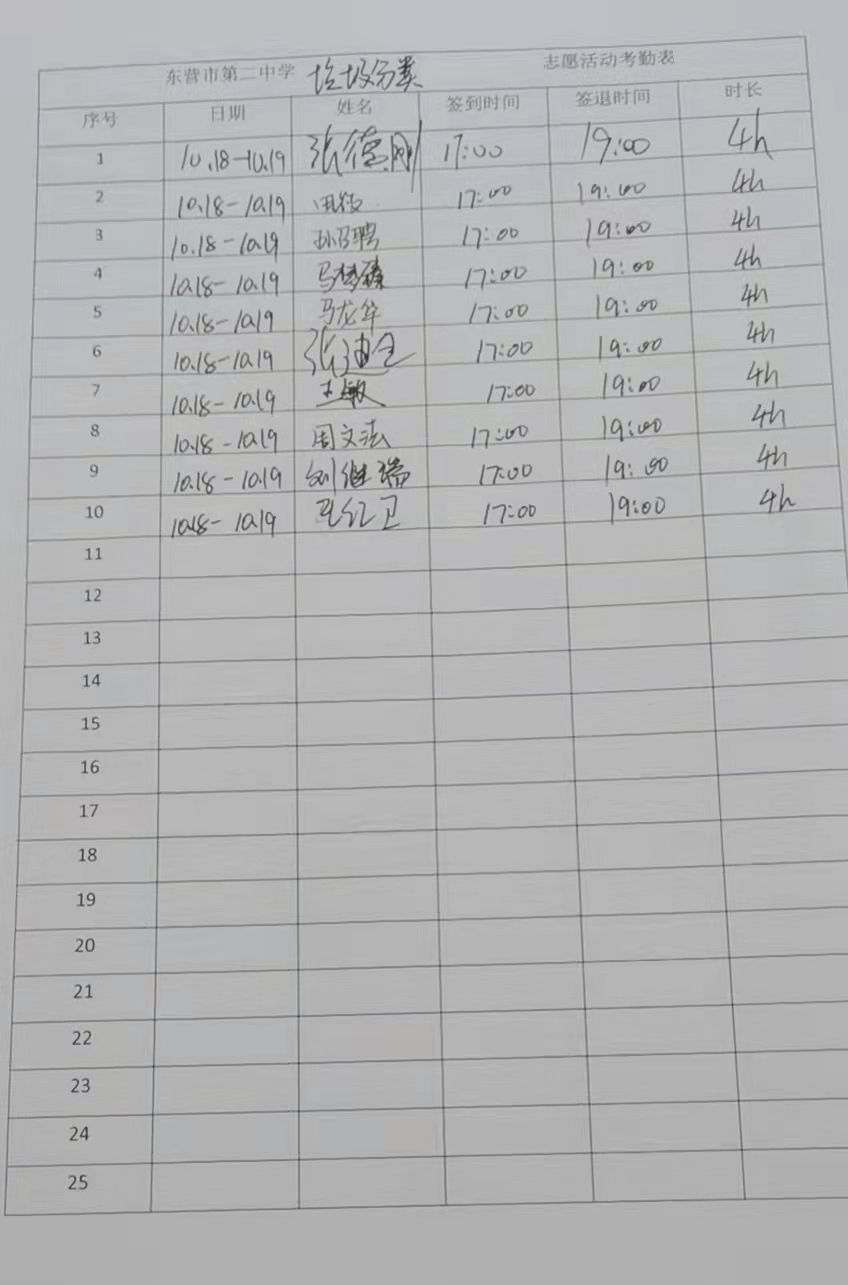 东营市第二中学 垃圾分类 志愿活动考勤表
序号 日期 姓名 签到时间 签退时间 时长
1 10.18-10.19 张德刚 17:00 19:00 4h
2 10.18-10.19 17:00 19:00 4h
3 10.18-10.19 17:00 19:00 4h
4 10.18-10.19 17:00 19:00 4h
5 10.18-10.19 马龙华 17:00 19:00 4h
6 10.18-10.19 17:00 19:00 4h
7 10.18-10.19 王敏 17:00 19:00 4h
8 10.18-10.19 周文法 17:00 19:00 4h
9 10.18-10.19 刘继瑞 17:00 19:00 4h
10 10.18-10.19 王红卫 17:00 19:00 4h
11
12
13
14
15
16
17
18
19
20
21
22
23
24
25